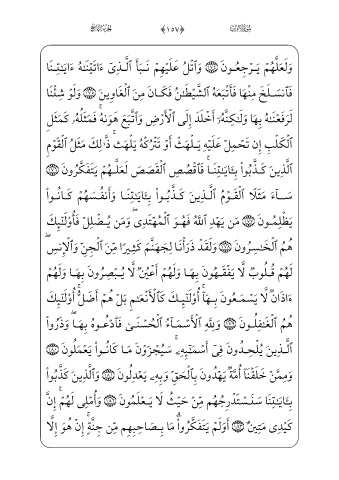 ﴿١٥٧﴾
وَلَعَلَّهُمْ يَرْجِعُونَ وَٱتْلُ عَلَيْهِمْ نَبَأَ ٱلَّذِىٓ ءَاتَيْنَٰهُ ءَايَٰتِنَا
فَٱنسَلَخَ مِنْهَا فَأَتْبَعَهُ ٱلشَّيْطَٰنُ فَكَانَ مِنَ ٱلْغَاوِينَ وَلَوْ شِئْنَا
لَرَفَعْنَٰهُ بِهَا وَلَٰكِنَّهُۥٓ أَخْلَدَ إِلَى ٱلْأَرْضِ وَٱتَّبَعَ هَوَىٰهُ ۚ فَمَثَلُهُۥ كَمَثَلِ
ٱلْكَلْبِ إِن تَحْمِلْ عَلَيْهِ يَلْهَثْ أَوْ تَتْرُكْهُ يَلْهَث ۚ ذَّٰلِكَ مَثَلُ ٱلْقَوْمِ
ٱلَّذِينَ كَذَّبُوا۟ بِـَٔايَٰتِنَا ۚ فَٱقْصُصِ ٱلْقَصَصَ لَعَلَّهُمْ يَتَفَكَّرُونَ
سَآءَ مَثَلًا ٱلْقَوْمُ ٱلَّذِينَ كَذَّبُوا۟ بِـَٔايَٰتِنَا وَأَنفُسَهُمْ كَانُوا۟
يَظْلِمُونَ مَن يَهْدِ ٱللَّهُ فَهُوَ ٱلْمُهْتَدِى ۖ وَمَن يُضْلِلْ فَأُو۟لَٰٓئِكَ
هُمُ ٱلْخَٰسِرُونَ وَلَقَدْ ذَرَأْنَا لِجَهَنَّمَ كَثِيرًا مِّنَ ٱلْجِنِّ وَٱلْإِنسِ ۖ
لَهُمْ قُلُوبٌ لَّا يَفْقَهُونَ بِهَا وَلَهُمْ أَعْيُنٌ لَّا يُبْصِرُونَ بِهَا وَلَهُمْ
ءَاذَانٌ لَّا يَسْمَعُونَ بِهَآ ۚ أُو۟لَٰٓئِكَ كَٱلْأَنْعَٰمِ بَلْ هُمْ أَضَلُّ ۚ أُو۟لَٰٓئِكَ
هُمُ ٱلْغَٰفِلُونَ وَلِلَّهِ ٱلْأَسْمَآءُ ٱلْحُسْنَىٰ فَٱدْعُوهُ بِهَا ۖ وَذَرُوا۟
ٱلَّذِينَ يُلْحِدُونَ فِىٓ أَسْمَٰٓئِهِۦ ۚ سَيُجْزَوْنَ مَا كَانُوا۟ يَعْمَلُونَ
وَمِمَّنْ خَلَقْنَآ أُمَّةٌ يَهْدُونَ بِٱلْحَقِّ وَبِهِۦ يَعْدِلُونَ وَٱلَّذِينَ كَذَّبُوا۟
بِـَٔايَٰتِنَا سَنَسْتَدْرِجُهُم مِّنْ حَيْثُ لَا يَعْلَمُونَ وَأُمْلِى لَهُمْ ۚ إِنَّ
كَيْدِى مَتِينٌ أَوَلَمْ يَتَفَكَّرُوا۟ ۗ مَا بِصَاحِبِهِم مِّن جِنَّةٍ ۚ إِنْ هُوَ إِلَّا